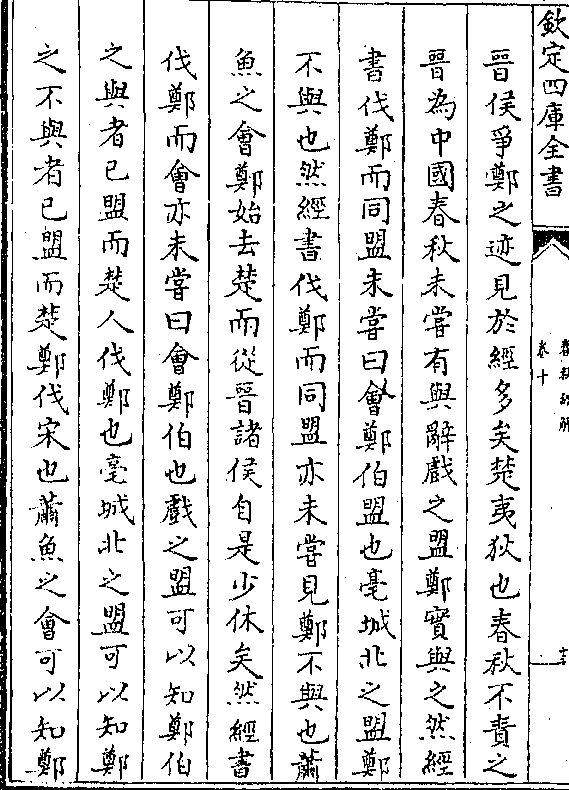 欽定四庫全書
卷十
晉侯爭鄭之迹見於經多矣楚夷狄也春秋不責之
晉為中國春秋未嘗有與辭戲之盟鄭實與之然經
書伐鄭而同盟未嘗曰會鄭伯盟也亳城北之盟鄭
不與也然經書伐鄭而同盟亦未嘗見鄭不與也蕭
魚之會鄭始去楚而從晉諸侯自是少休矣然經書
伐鄭而會亦未嘗曰會鄭伯也戲之盟可以知鄭伯
之與者已盟而楚人伐鄭也亳城北之盟可以知鄭
之不與者已盟而楚鄭伐宋也蕭魚之會可以知鄭